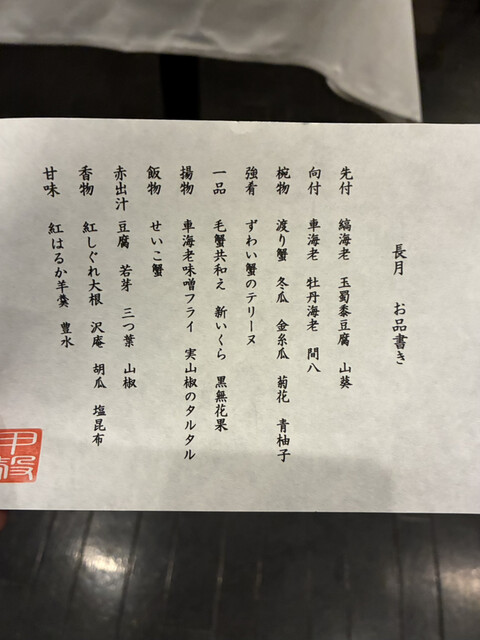 長月　お品書き
先付　縞海老　玉蜀黍豆腐　山葵
向付　車海老　牡丹海老　間八
椀物　渡り蟹　冬瓜　金糸瓜　菊花　青柚子
強肴　ずわい蟹のテリーヌ
一品　毛蟹共和え　新いくら　黒無花果
揚物　車海老味噌フライ　実山椒のタルタル
飯物　せいこ蟹
赤出汁　豆腐　若芽　三つ葉　山椒
香物　紅しぐれ大根　沢庵　胡瓜　塩昆布
甘味　紅はるか羊羹　豊水
甲殻